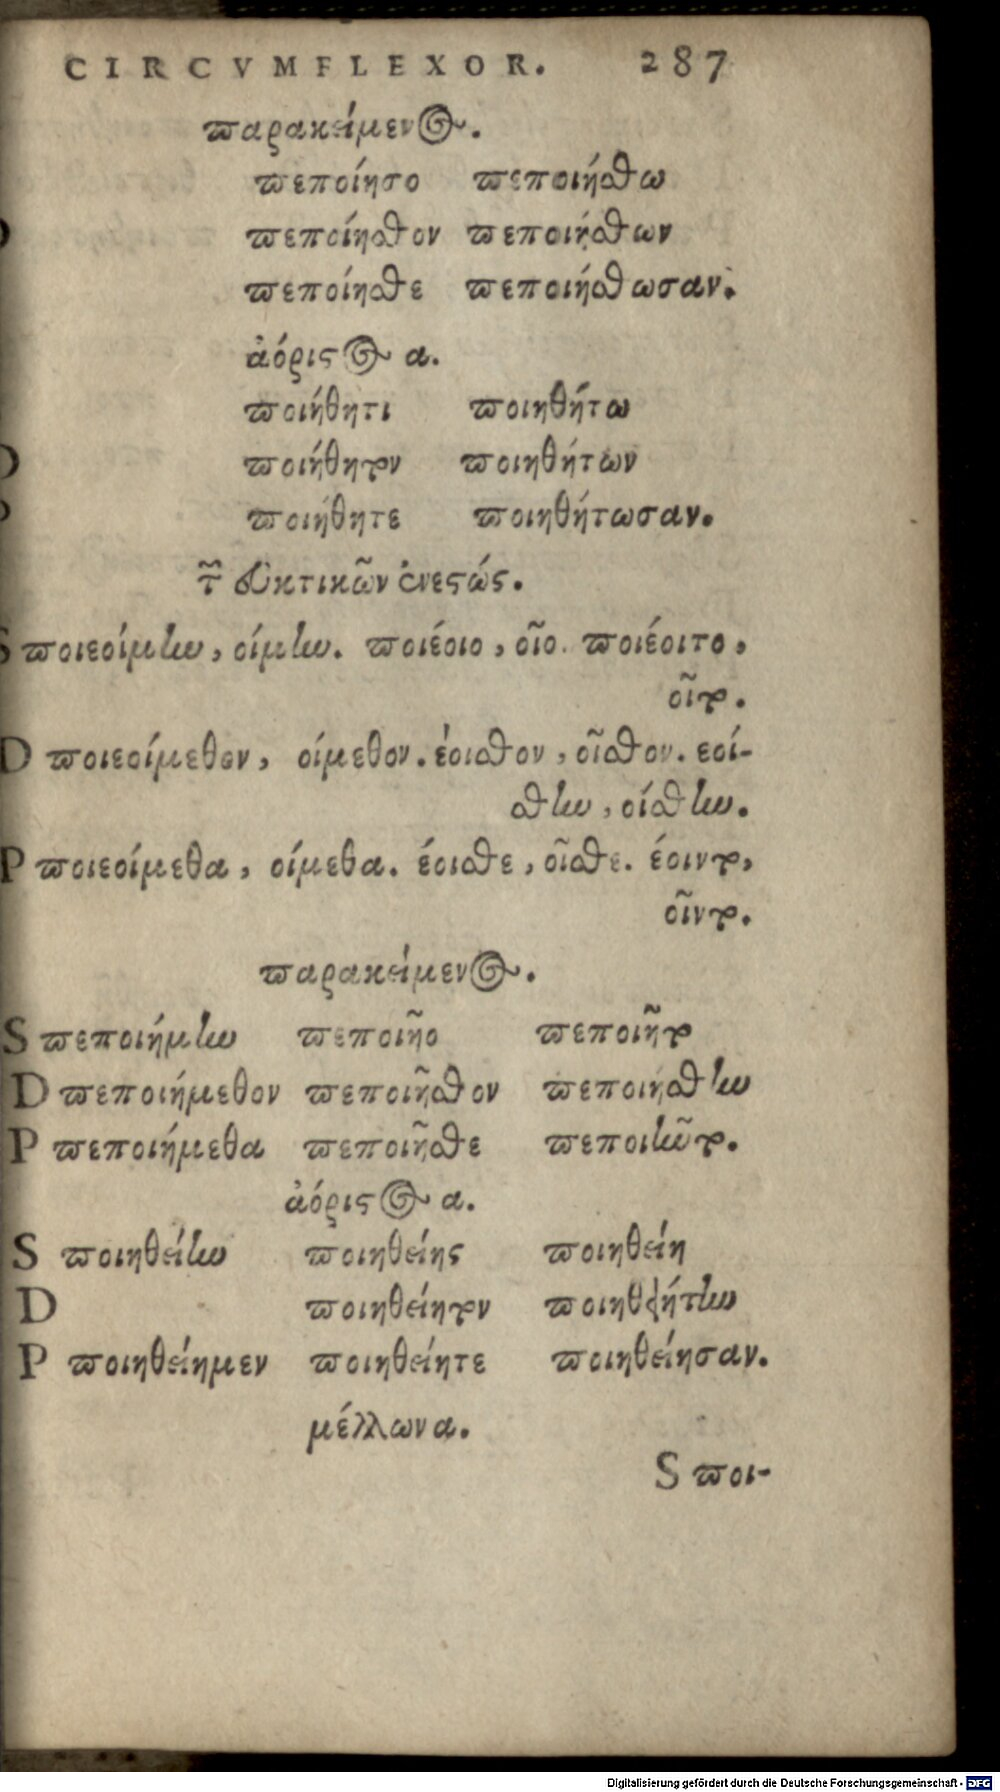 CIRCVMFLEXOR. 287
παρακείμενος.
πεποίησο πεποιήσθω
D πεποίησθον πεποιήσθων
πεποίησθε πεποιήσθωσαν.
ἀόριστος α.
ποιήθητι ποιηθήτω
D ποιήθητον ποιηθήτων
P ποιήθητε ποιηθήτωσαν.
τῶν εὐκτικῶν ἐνεστώς.
S ποιεοίμην, οίμην. ποιέοιο, οῖο. ποιέοιτο,
οῖτο.
D ποιεοίμεθον, οίμεθον. έοισθον, οῖσθον. εοί-
σθην, οίσθην.
P ποιεοίμεθα, οίμεθα. έοισθε, οῖσθε. έοιντο,
οῖντο.
παρακείμενος.
S πεποιήμην πεποιῆο πεποιῆτο
D πεποιήμεθον πεποιῆσθον πεποιήσθην
P πεποιήμεθα πεποιῆσθε πεποιῆντο.
ἀόριστος α.
S ποιηθείην ποιηθείης ποιηθείη
D ποιηθείητον ποιηθειήτην
P ποιηθείημεν ποιηθείητε ποιηθείησαν.
μέλλων α.
S ποι-
Digitalisierung gefördert durch die Deutsche Forschungsgemeinschaft - DFG